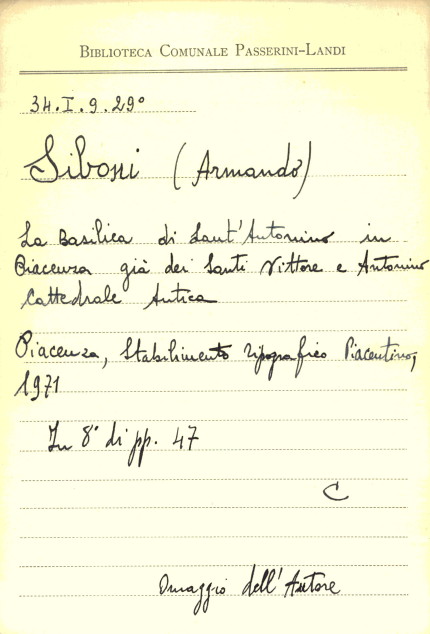 BIBLIOTECA COMUNALE PASSERINI-LANDI
34.I.9.29°
Siboni (Armando)
La Basilica di Sant'Antonino in
Piacenza già dei Santi Vittore e Antonino
Cattedrale Antica
Piacenza, Stabilimento Tipografico Piacentino,
1971
In 8° di pp. 47
C
Omaggio dell'Autore